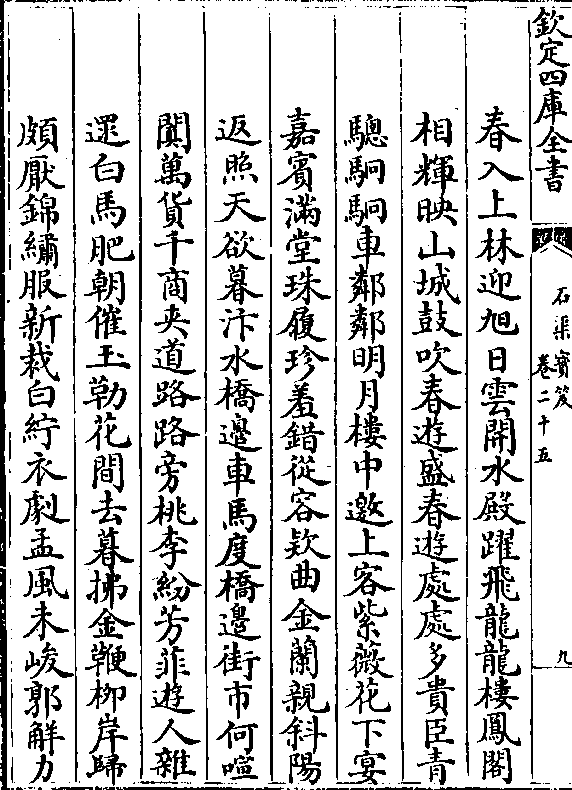 欽定四庫全書
石渠寳笈
卷二十五
九
春入上林迎旭日雲開水殿躍飛龍龍樓鳳閣
相輝映山城鼓吹春遊盛春遊處處多貴臣青
驄駉駉車鄰鄰明月樓中邀上客紫薇花下宴
嘉賓滿堂珠履珍羞錯從容欵曲金蘭親斜陽
返照天欲暮汴水橋邉車馬度橋邉街市何喧
闐萬貨千商夾道路路旁桃李紛芳菲遊人雜
遝白馬肥朝催玉勒花間去暮拂金鞭柳岸歸
頗厭錦繡服新裁白紵衣劇孟風未峻郭解力